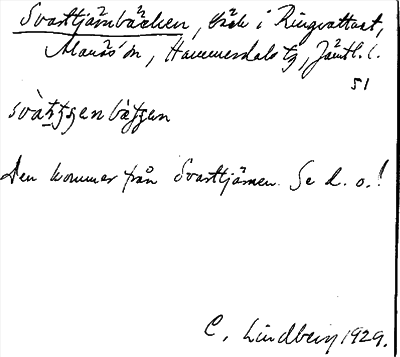 Svarttjärnbäcken, bäck i Ringvattnet,
Alanäs sn, Hammerdals tg, Jämtl. l.
51
Den kommer från Svarttjärnen. Se d. o.!
C. Lindberg 1929.